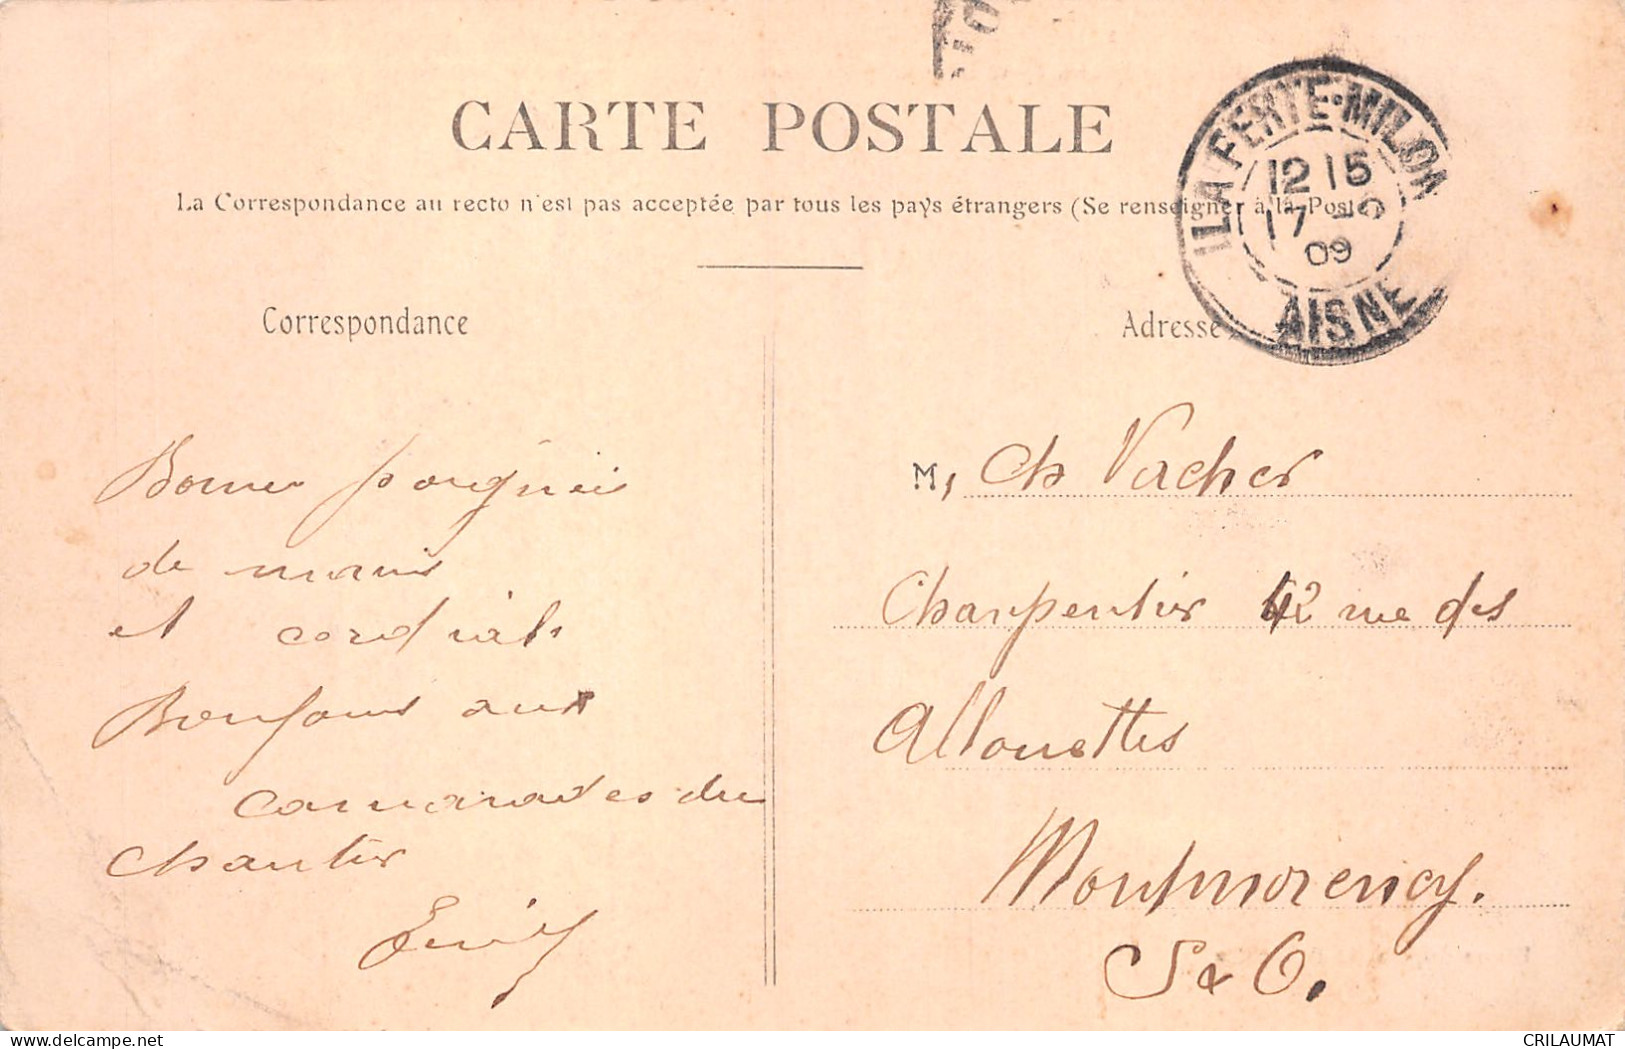 CARTE POSTALE
La Correspondance au recto n'est pas acceptée par tous les pays étrangers (Se renseigner à la Poste
LA FERTE-MILON
12 15
17 -6
09
AISNE
Correspondance
Adresse
Bonnes poignées
de mains
et cordials
Bonjours aux
camarades du
chantier
M, Ch Vacher
Charpentier 42 rue des
Allouettes
Montmorency.
S & O.
CRILAUMAT